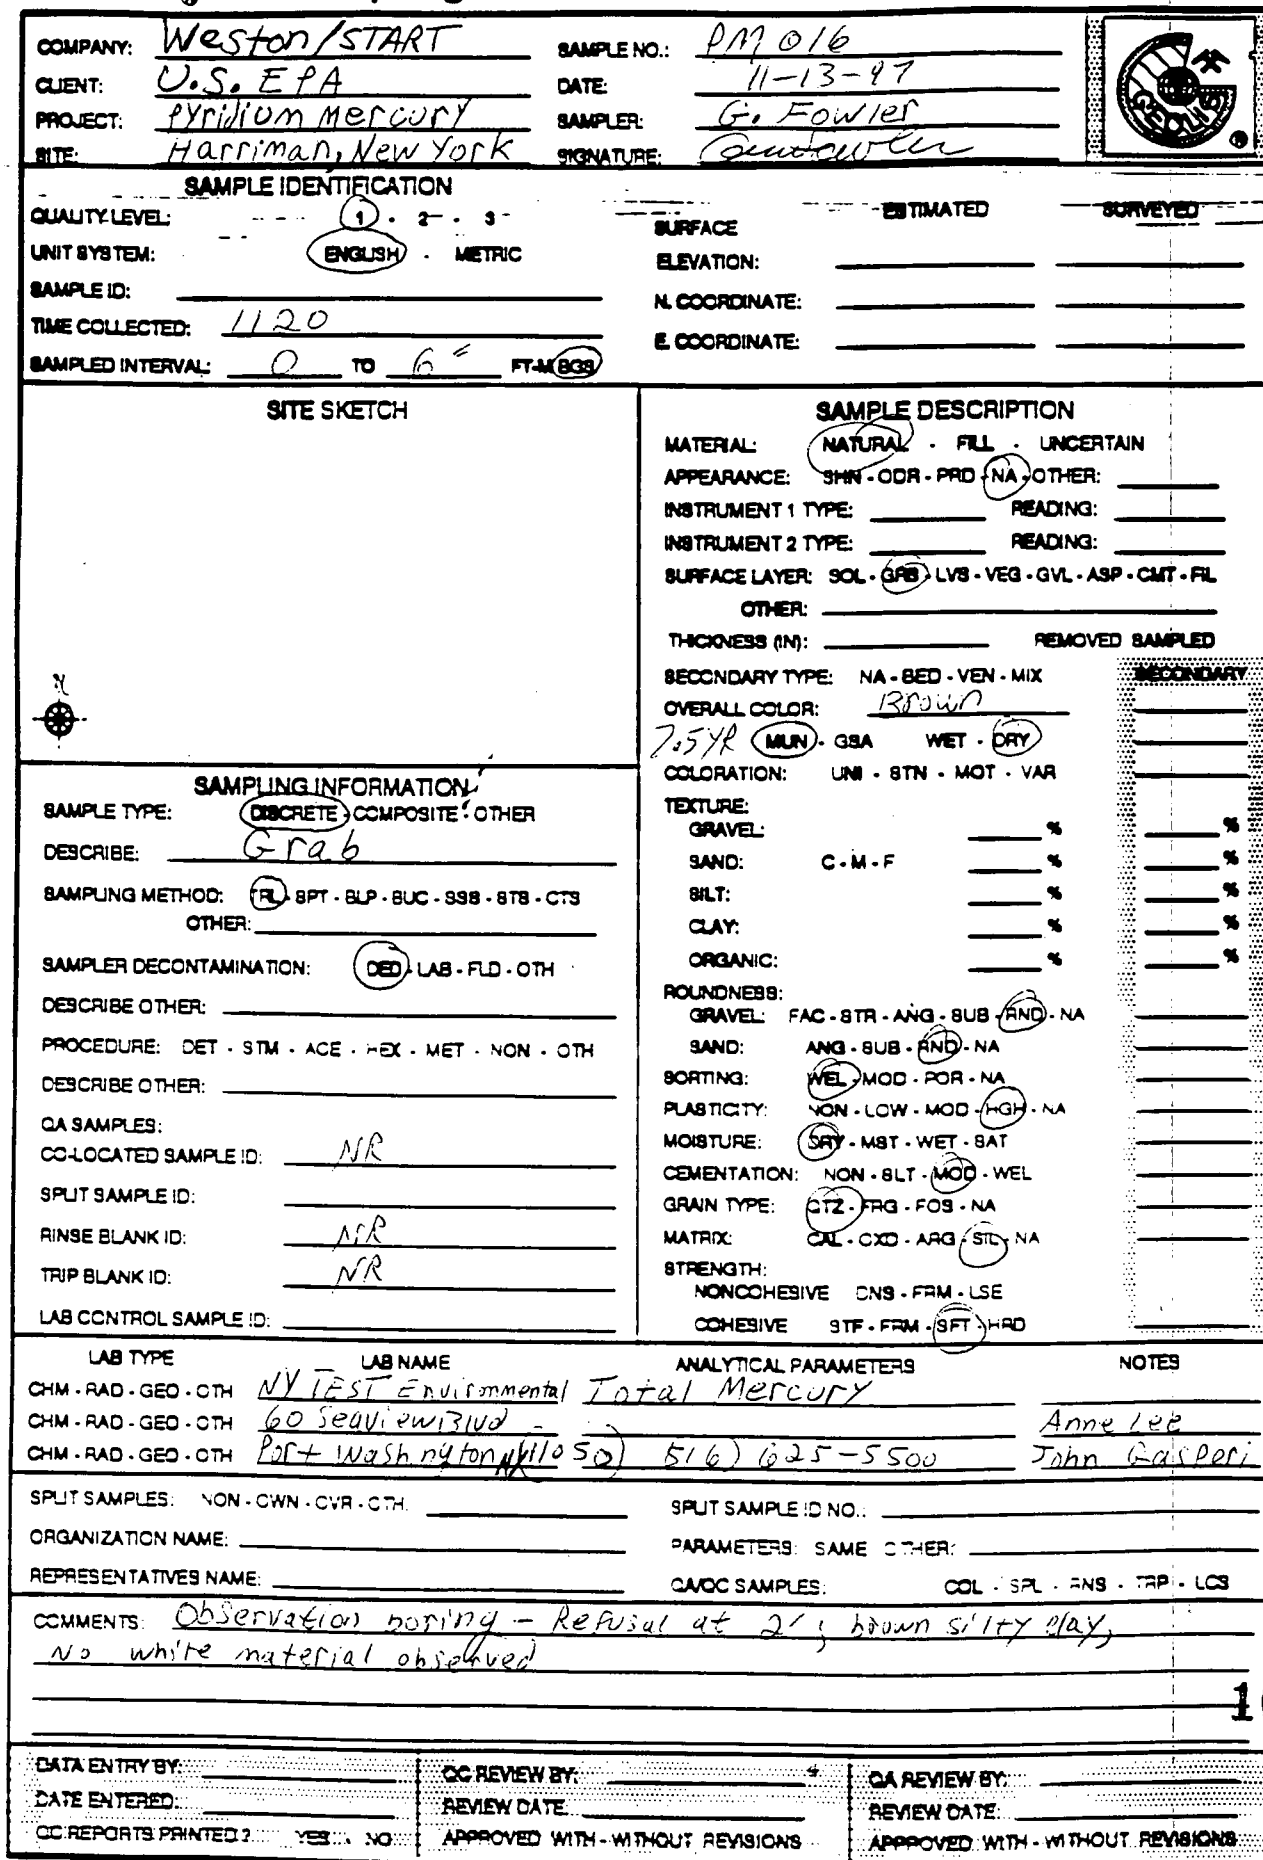 COMPANY: Weston/START SAMPLE NO.: PM 016
CLIENT: U.S. EPA DATE: 11-13-97
PROJECT: Pyridium Mercury SAMPLER: G. Fowler
SITE: Harriman, New York SIGNATURE:
GEOLIS ®
SAMPLE IDENTIFICATION
QUALITY LEVEL: 1 - 2 - 3
UNIT SYSTEM: ENGLISH - METRIC
SAMPLE ID:
TIME COLLECTED: 1120
SAMPLED INTERVAL: 0 TO 6" FT-M BGS
ESTIMATED SURVEYED
SURFACE
ELEVATION:
N. COORDINATE:
E. COORDINATE:
SITE SKETCH
N
SAMPLING INFORMATION
SAMPLE TYPE: DISCRETE - COMPOSITE - OTHER
DESCRIBE: Grab
SAMPLING METHOD: TRL - SPT - BLP - BUC - SSS - STS - CTS
OTHER:
SAMPLER DECONTAMINATION: DED - LAB - FLD - OTH
DESCRIBE OTHER:
PROCEDURE: DET - STM - ACE - HEX - MET - NON - OTH
DESCRIBE OTHER:
QA SAMPLES:
CO-LOCATED SAMPLE ID: NR
SPLIT SAMPLE ID:
RINSE BLANK ID: NR
TRIP BLANK ID: NR
LAB CONTROL SAMPLE ID:
SAMPLE DESCRIPTION
MATERIAL: NATURAL - FILL - UNCERTAIN
APPEARANCE: SHN - ODR - PRD - NA - OTHER:
INSTRUMENT 1 TYPE: READING:
INSTRUMENT 2 TYPE: READING:
SURFACE LAYER: SOL - GRS - LVS - VEG - GVL - ASP - CMT - FIL
OTHER:
THICKNESS (IN): REMOVED SAMPLED
SECONDARY TYPE: NA - BED - VEN - MIX SECONDARY
OVERALL COLOR: Brown
7.5YR MUN - GSA WET - DRY
COLORATION: UNI - STN - MOT - VAR
TEXTURE:
GRAVEL: % %
SAND: C - M - F % %
SILT: % %
CLAY: % %
ORGANIC: % %
ROUNDNESS:
GRAVEL: FAC - STR - ANG - SUB - RND - NA
SAND: ANG - SUB - RND - NA
SORTING: WEL - MOD - POR - NA
PLASTICITY: NON - LOW - MOD - HGH - NA
MOISTURE: DRY - MST - WET - SAT
CEMENTATION: NON - SLT - MOD - WEL
GRAIN TYPE: QTZ - FRG - FOS - NA
MATRIX: CAL - OXD - ARG - SIL - NA
STRENGTH:
NONCOHESIVE DNS - FRM - LSE
COHESIVE STF - FRM - SFT - HRD
LAB TYPE LAB NAME ANALYTICAL PARAMETERS NOTES
CHM - RAD - GEO - OTH NY TEST Environmental Total Mercury
CHM - RAD - GEO - OTH 60 Seaview Blvd Anne Lee
CHM - RAD - GEO - OTH Port Washington NY 11050 516) 625-5500 John Gasperi
SPLIT SAMPLES: NON - OWN - OVR - OTH: SPLIT SAMPLE ID NO.:
ORGANIZATION NAME: PARAMETERS: SAME OTHER:
REPRESENTATIVES NAME: QA/QC SAMPLES: COL - SPL - RNS - TRP - LCS
COMMENTS: Observation boring - Refusal at 2'; brown silty clay,
No white material observed
DATA ENTRY BY: QC REVIEW BY: QA REVIEW BY:
DATE ENTERED: REVIEW DATE: REVIEW DATE:
QC REPORTS PRINTED? YES NO APPROVED WITH - WITHOUT REVISIONS APPROVED WITH - WITHOUT REVISIONS